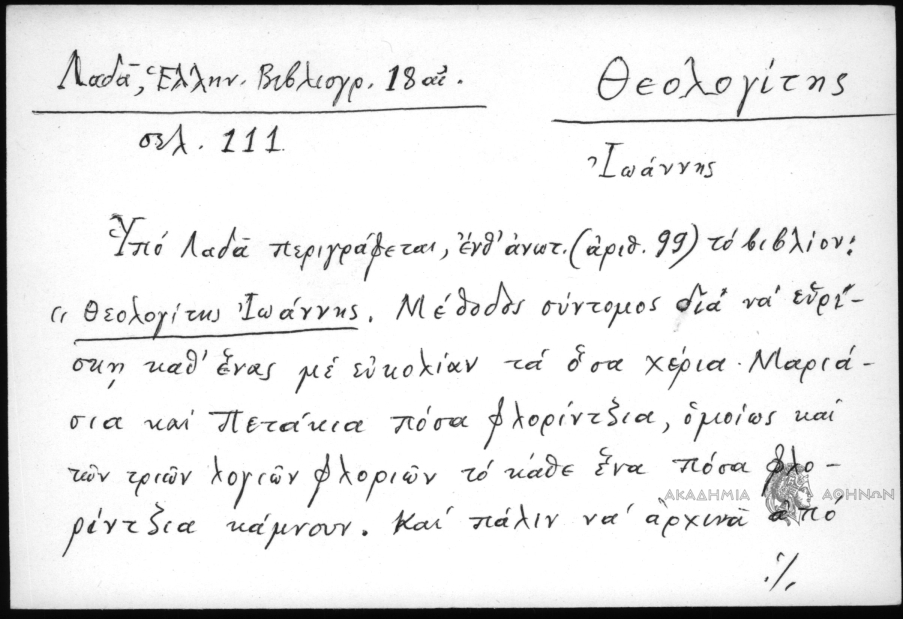 Λαδᾶ, Ἑλλην. Βιβλιογρ. 18 αἰ.
σελ. 111
Θεολογίτης
Ἰωάννης
Ὑπό Λαδᾶ περιγράφεται, ἔνθ' ἀνωτ. (ἀριθ. 99) τό βιβλίον:
« Θεολογίτης Ἰωάννης. Μέθοδος σύντομος διά νά εὑρί-
σκῃ καθ' ἕνας μέ εὐκολίαν τά ὅσα χέρια. Μαριά-
σια καί Πετάκια πόσα φλορίντζια, ὁμοίως καί
τῶν τριῶν λογιῶν φλοριῶν τό κάθε ἕνα πόσα φλο-
ρίντζια κάμνουν. Καί πάλιν νά ἀρχινᾶ ἀπό
./.
ΑΚΑΔΗΜΙΑ ΑΘΗΝΩΝ